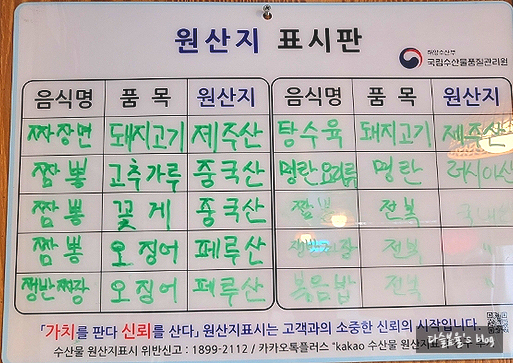 원산지 표시판
해양수산부
국립수산물품질관리원
음식명 품목 원산지 음식명 품목 원산지
짜장면 돼지고기 제주산 탕수육 돼지고기 제주산
짬뽕 고추가루 중국산 명란요리류 명란 러시아산
짬뽕 꽃게 중국산 짬뽕 전복 국내산
짬뽕 오징어 페루산 쟁반짜장 전복 "
쟁반짜장 오징어 페루산 볶음밥 전복 "
「가치를 판다 신뢰를 산다」 원산지표시는 고객과의 소중한 신뢰의 시작입니다
수산물 원산지표시 위반신고 : 1899-2112 / 카카오톡플러스 "kakao 수산물 원산지
's blog